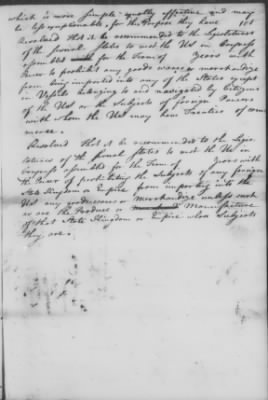 which is more simple - equally effective and may
be less exceptionable, for the Purposes they have
Resolved that it be recommended to the Legislatures
of the several States to vest the US in Congress
assembled for the Term of Years with
Power to prohibit any goods wares or merchandize
from being imported into any of the States except
in Vessels belonging to and navigated by Citizens
of the US or the Subjects of foreign Powers
with whom the US may have Treaties of com
merce.
Resolved that it be recommended to the Legis
latures of the several States to vest the US in
Congress assembled for the Term of Years with
the Power of prohibiting the Subjects of any foreign
State Kingdom or Empire from importing into the
US any goods wares or Merchandize unless such
as are the Produce or Manufacture
of that State Kingdom or Empire whose Subjects
they are.